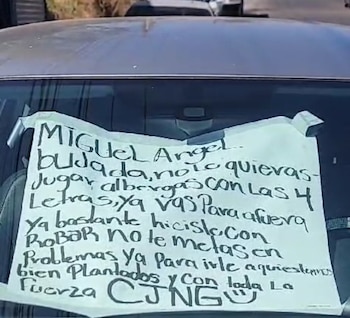 MIGUEL Angel..
bujada, no te quieras
Jugar alberga s con Las 4
Letras, ya VAS Para afuera
Ya bastante hiciste, con
RoBAR no te metas en
Problemas ya Para irle aquiestamos
bien Plantados y Con toda La
Fuerza CJNG